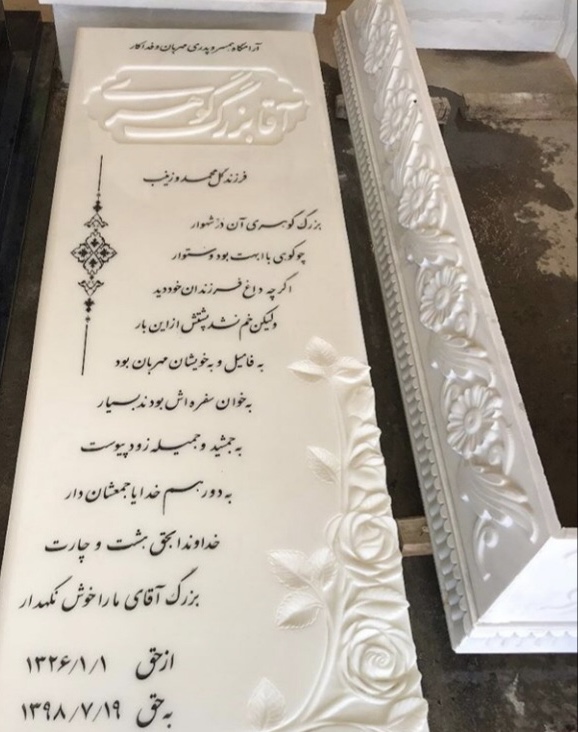 آرامگاه همسر و پدری مهربان و فداکار
آقا بزرگ گوهری
فرزند گل محمد و زینب
بزرگ گوهری آن درّ شهوار
چو کوهی با ابهت بود و ستوار
اگرچه داغ فرزندان خود دید
ولیکن خم نشد پشتش از این بار
به فامیل و به خویشان مهربان بود
به خوان سفره اش بودند بسیار
به جمشید و جمیله زود پیوست
به دور هم خدایا جمعشان دار
خداوندا بحق هشت و چارت
بزرگ آقای ما را خوش نگهدار
از حق ۱۳۲۶/۱/۱
به حق ۱۳۹۸/۷/۱۹